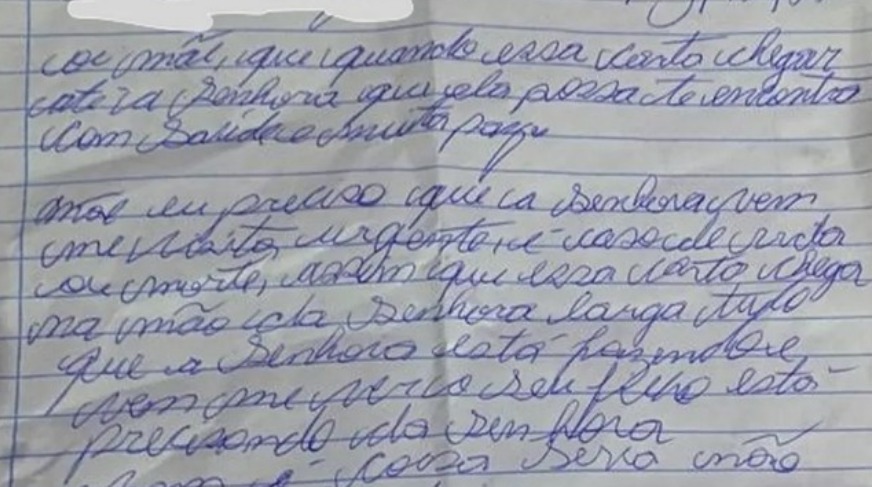 oi mãe, que quando essa carta chegar
até a senhora que ela possa te encontra
com saude e muita paz
mãe eu preciso que a senhora vem
me visita urgente, é caso de vida
ou morte, assim que essa carta chega
na mão da senhora larga tudo
que a senhora está fazendo e
vem me ver o seu filho está
precisando da senhora
é coisa seria não